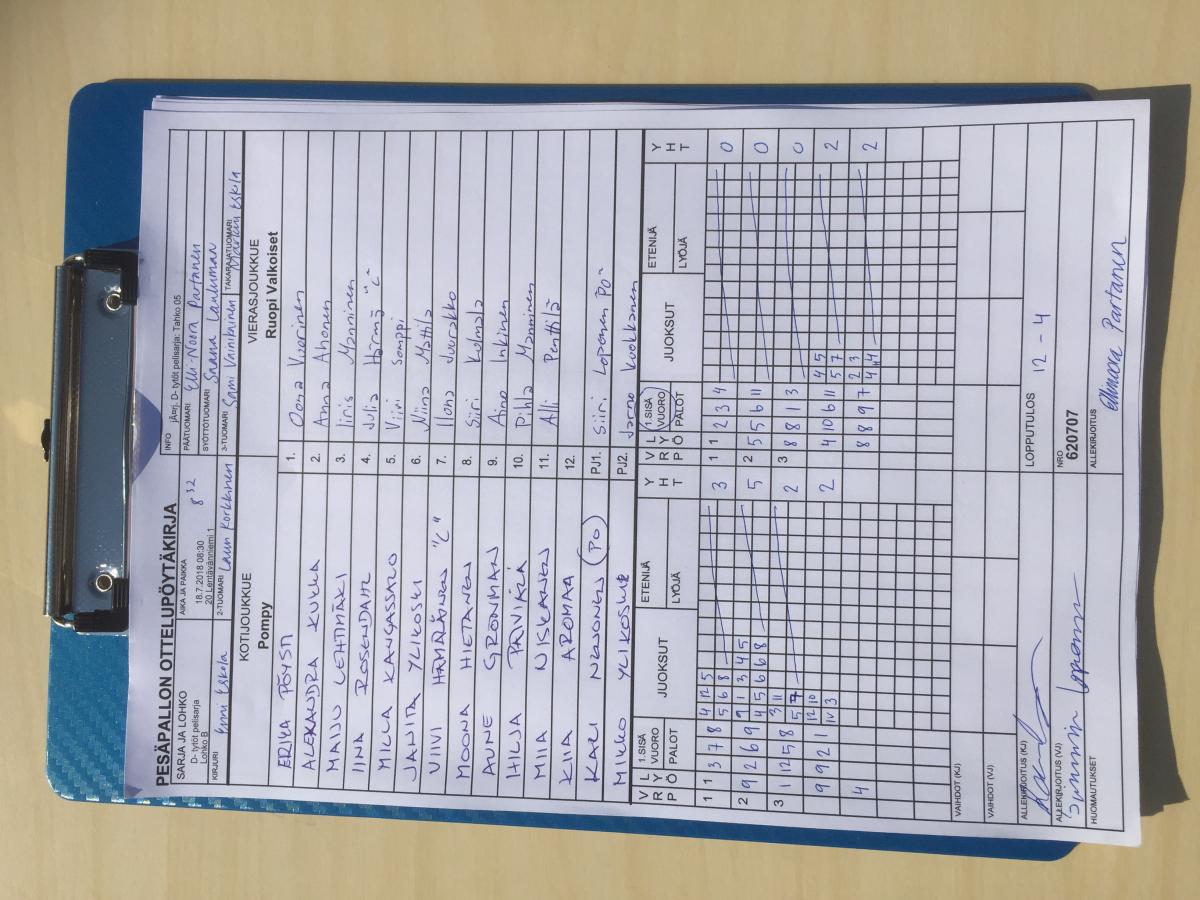 PESÄPALLON OTTELUPÖYTÄKIRJA
SARJA JA LOHKO
D- tytöt pelisarja
Lohko B
AIKA JA PAIKKA
18.7.2018 08:30
8 32
20 Lentävänniemi 1
INFO jÄrrj. D- tytöt pelisarja: Tahko 05
PÄÄTUOMARI Elli-Noora Partanen
SYÖTTÖTUOMARI Saana Lanluman
KIRJURI Eskola
2-TUOMARI Lauri Korkkinen
3-TUOMARI Sami Vainikainen
TAKARAJATUOMARI Markku Eskola
KOTIJOUKKUE
Pompy
VIERASJOUKKUE
Ruopi Valkoiset
ERIKA PÖYSTI 1. Oona Vuorinen
ALEKSANDRA KUKKA 2. Anna Ahonen
MAIJU LEHTIMÄKI 3. Iiris Manninen
IINA ROSENDAHL 4. Julia Härmä "C"
MILLA KANGASSALO 5. Viivi Somppi
JANITA YLIKOSKI 6. Niina Mattila
VIIVI HÄMÄLÄINEN "C" 7. Ilona Juurakko
MOONA HIETANEN 8. Siiri Kolmala
AUNE GRÖNMAN 9. Aino Inkinen
HILJA PÄIVIÄLÄ 10. Pihla Manninen
MIIA NISKANEN 11. Alli Penttilä
KIIA AROMAA 12.
KARI NOJONEN (PO) PJ1. Siiri Loponen PO
MIKKO YLIKOSKI PJ2. Jarno Kuokkanen
V R P L Y Ö 1.SISÄ VUORO PALOT JUOKSUT ETENIJÄ LYÖJÄ Y H T V R P L Y Ö 1.SISÄ VUORO PALOT JUOKSUT ETENIJÄ LYÖJÄ Y H T
1 1 3 7 8 4 12 5 3 1 1 2 3 4 0
5 6 8
2 9 2 6 9 9 1 3 4 5 5 2 5 5 6 11 0
4 5 6 6 8
3 1 12 5 8 3 11 2 3 8 8 1 3 0
5 7
9 9 2 1 12 10 2 4 10 6 11 4 5 2
IV 3 5 7
4 8 8 9 7 2 3 2
4
VAIHDOT (KJ)
VAIHDOT (VJ)
ALLEKIRJOITUS (KJ)
LOPPUTULOS 12 - 4
ALLEKIRJOITUS (VJ)
NRO
620707
HUOMAUTUKSET
ALLEKIRJOITUS Ellinoora Partanen